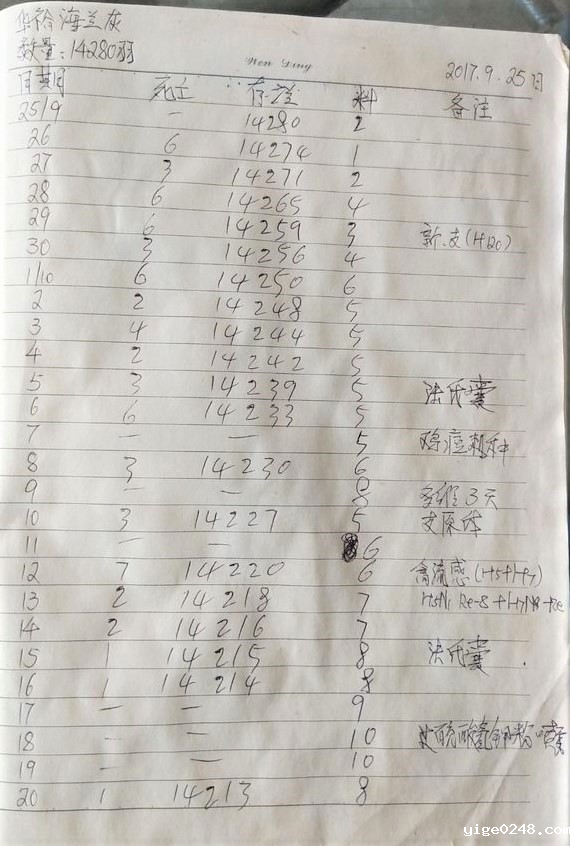 华裕海兰灰
数量:14280羽
Wen Ding
2017.9.25日
日期 死亡 存差 料 备注
25/9 — 14280 2
26 6 14274 1
27 3 14271 2
28 6 14265 4
29 6 14259 3 新.支(H120)
30 3 14256 4
1/10 6 14250 6
2 2 14248 5
3 4 14244 5
4 2 14242 5
5 3 14239 5 法氏囊
6 6 14233 5
7 — — 5 鸡痘刺种
8 3 14230 6
9 — — 8 3天
10 3 14227 5 支原体
11 — — 6
12 7 14220 6 禽流感(H5+H7)
13 2 14218 7 H5N1 Re-8+H7N9
14 2 14216 7
15 1 14215 8 法氏囊
16 1 14214 8
17 — — 9
18 — — 10
19 — — 10
20 1 14213 8
yige0248.com